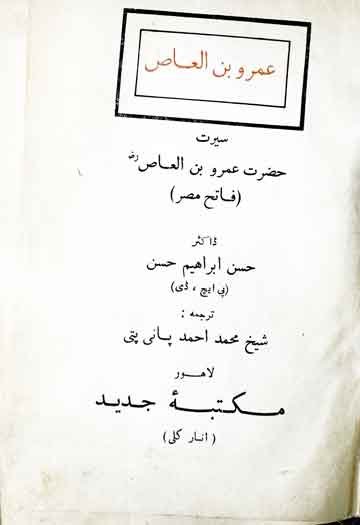 عمرو بن العاص
سیرت
حضرت عمرو بن العاص رض
(فاتح مصر)
ڈاکٹر
حسن ابراھیم حسن
(پی ایچ ، ڈی)
ترجمہ :
شیخ محمد احمد پانی پتی
لاھور
مکتبۂ جدید
(انار کلی)